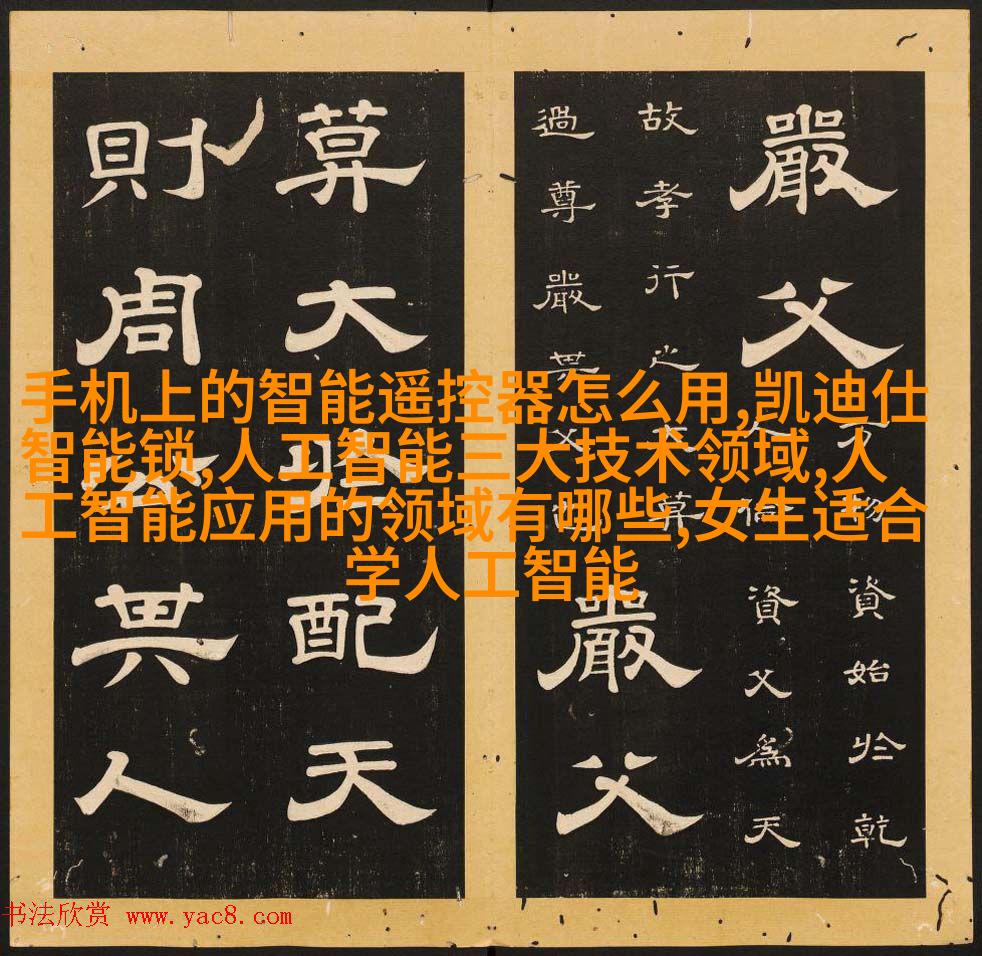 嚴父
万物資始於乾
人倫資父為天
故孝行之大莫
過尊嚴其父也
嚴父
莫大於配天
則周公其人
手机上的智能遥控器怎么用,凯迪仕
智能锁,人工智能三大技术领域,人
工智能应用的领域有哪些,女生适合
学人工智能
书法欣赏 www.yac8.com